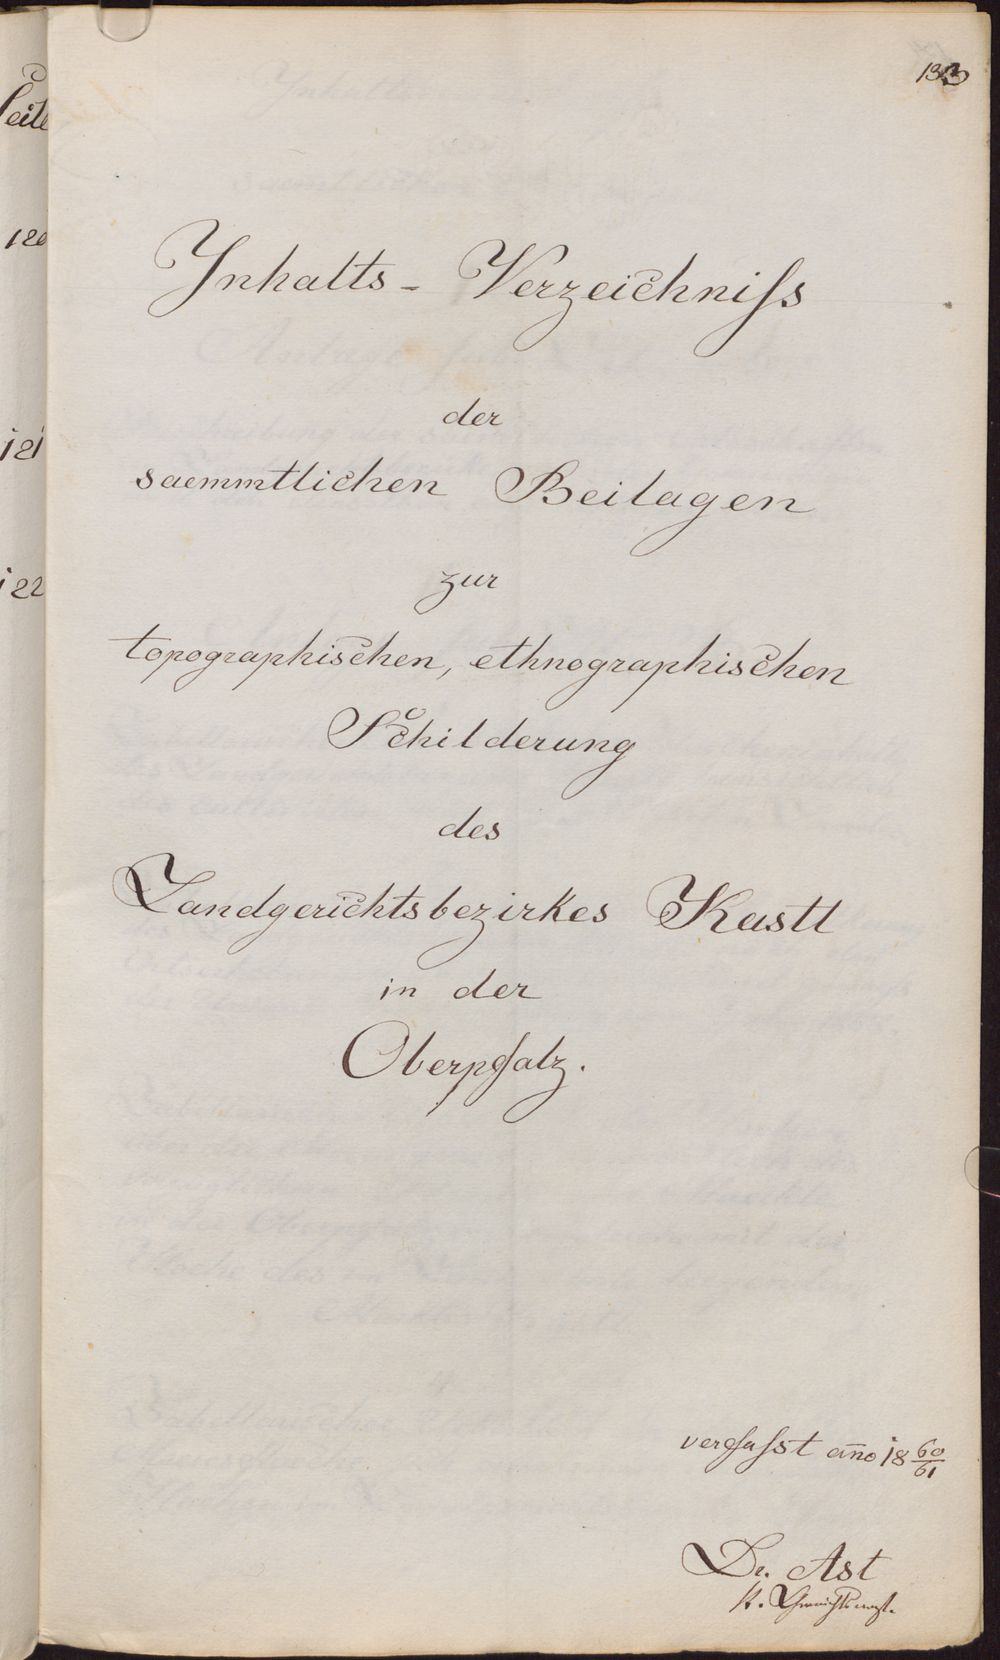 133
Seite
120
121
122
Inhalts-Verzeichniss
der
saemmtlichen Beilagen
zur
topographischen, ethnographischen
Schilderung
des
Landgerichtsbezirkes Kastl
in der
Oberpfalz.
verfasst año 18 60/61
Dr. Ast
k. Gerichtsarzt.